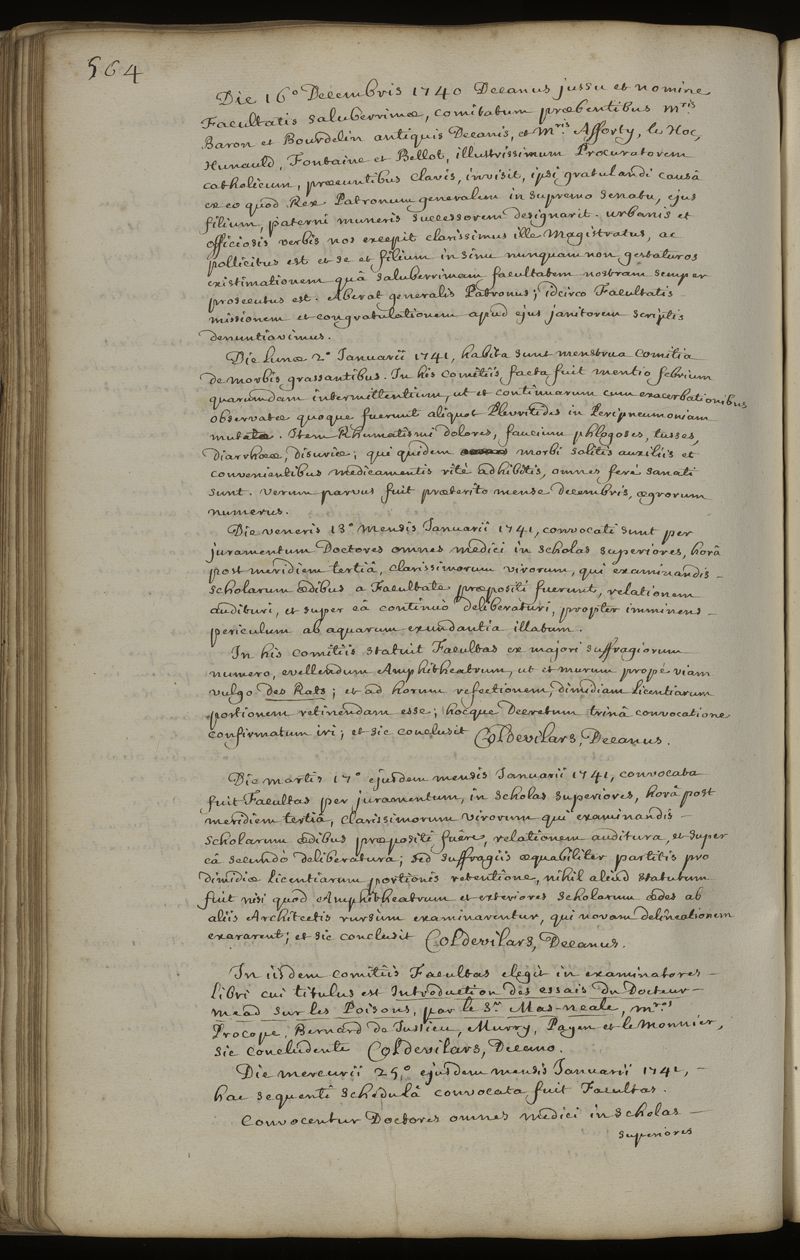 564
Die 16° Decembris 1740 Decanus jussu et nomine
Facultatis Saluberrimæ, comitatum præbentibus Mris
Baron et Bourdelin antiquis Decanis, et Mris Afforty, le Hoc,
Hunauld, Fontaine et Bellot, illustrissimum Procuratorem
Catholicum, præeuntibus clavis, invisit, ipsi gratulandi causâ
ex eo quod Rex Patronum generalem in supremo Senatu, ejus
filium, paterni muneris successorem designarit. urbanis et
officiosis verbis nos excepit clarissimus ille Magistratus, ac
pollicitus est et se et filium in sinu nunquam non gestaturos
existimationem quâ saluberrimam facultatem nostram semper
prosecutus est. Aberat generalis Patronus; idcirco Facultatis
missionem et congratulationem apud ejus janitorem scriptis
denuntiavimus.
Die Lunæ 2ª Januarii 1741, habita sunt menstrua Comitia
de morbis grassantibus. In his Comitiis facta fuit mentio febrium
quarumdam intermittentium, ut et continuarum cum exacerbationibus
observatæ quoque fuerunt aliquot Pleuritides in Peripneumoniam
mutatæ. Item Rhumatismi dolores, faucium phlogoses, tusses,
Diarrhææ, disuriæ; qui quidem morbi solitis auxiliis et
convenientibus medicamentis ritè adhibitis, omnes ferè sanati
sunt. verum parvus fuit præterito mense decembris, ægrorum
numerus.
Die veneris 13ª Mensis Januarii 1741, convocati sunt per
juramentum Doctores omnes medici in Scholas superiores, horâ
post meridiem tertiâ, clarissimorum virorum, qui examinandis -
scholarum ædibus a Facultate præpositi fuerunt, relationem
audituri, et super eâ continuò deliberaturi, propter imminens -
periculum ab aquarum exundantia illatum.
In his Comitiis statuit Facultas ex majori suffragiorum
numero, evellendum Amphitheatrum, ut et murum propè viam
vulgo des Rats; et ad horum refectionem, dimidiam Licentiarum
portionem retinendam esse; hocque Decretum trinâ convocatione
confirmatum iri; et sic conclusit Coldevilars, Decanus.
Die martis 17ª ejusdem mensis Januarii 1741, convocata
fuit Facultas per juramentum, in scholas superiores, horâ post
meridiem tertiâ, clarissimorum virorum qui examinandis -
Scholarum ædibus præpositi fuêre, relationem auditura, et super
eâ secundò deliberatura; sed suffragiis æquabiliter partitis pro
dimidiæ licentiarum portionis retentione, nihil aliud statutum
fuit nisi quod Amphitheatrum et exteriores Scholarum ædes ab
aliis Architectis rursum examinarentur, qui novam delineationem
exararent; et sic conclusit Coldevilars, Decanus.
In iisdem comitiis Facultas elegit in examinatores -
Libri cui titulus est Introduction des essais du Docteur -
mead sur les Poisons, par le Sr Mas-neale, Mros
Procope, Bernard de Jussieu, Murry, Payen et le Monnier,
sic concludente Coldevilars, Decano.
Die mercurii 25ª ejusdem mensis Januarii 1741, -
hac sequenti schedulâ convocata fuit Facultas.
Convocentur Doctores omnes medici in scholas -
superiores